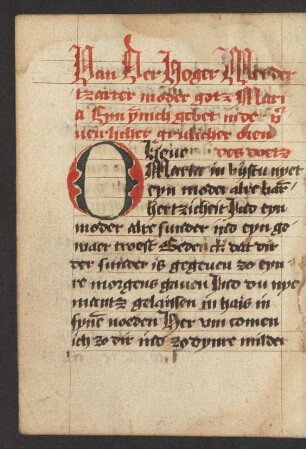 Van Der Hoger Werder
tzarter moder gotz Mari
a Eyn ynich gebet in der
uerlicher gruilicher
des doetz
O
Maria in bystu nyet
eyn moder alre bar
hertzicheit Ind eyn
moder alre sunder ind eyn ge
waer troest Gedenck dat dir
der sunder is gegeuen zo eyn
re morgens gauen Ind du nye
mantz gelaissen in hais in
synen noeden Her vm comen
ich zo dir ind zo dynre milder